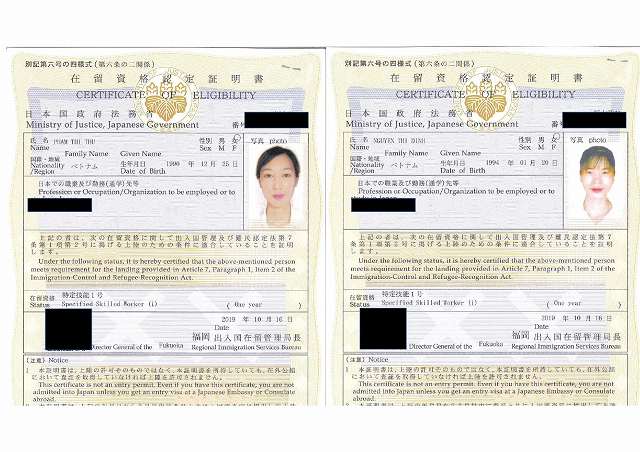 別記第六号の四様式(第六条の二関係)
在留資格認定証明書
CERTIFICATE OF ELIGIBILITY
日本国政府法務省
Ministry of Justice, Japanese Government
氏名 PHAM THI THU 性別 男 女
Name Family Name Given Name Sex M F
写真 photo
国籍・地域 ベトナム 生年月日 1990 年 12 月 25 日
Nationality /Region Date of Birth
日本での職業及び勤務(通学)先等
Profession or Occupation/Organization to be employed or to
上記の者は、次の在留資格に関して出入国管理及び難民認定法第7
条第1項第2号に掲げる上陸のための条件に適合していることを証明
します。
Under the following status, it is hereby certified that the above-mentioned person
meets requirement for the landing provided in Article 7, Paragraph 1, Item 2 of the
Immigration-Control and Refugee-Recognition Act.
在留資格 特定技能1号
Status Specified Skilled Worker (i) ( One year )
2019 年 10 月 16 日
Date
福岡 出入国在留管理局長
Director General of the Fukuoka Regional Immigration Services Bureau
(注意) Notice
1 本証明書は、上陸の許可そのものではなく、本証明書を所持していても、在外公館
において査証を取得していなければ上陸を許可されません。
This certificate is not an entry permit. Even if you have this certificate, you are not
admitted into Japan unless you get an entry visa at a Japanese Embassy or Consulate
abroad.
別記第六号の四様式(第六条の二関係)
在留資格認定証明書
CERTIFICATE OF ELIGIBILITY
日本国政府法務省
Ministry of Justice, Japanese Government
氏名 NGUYEN THI DINH 性別 男 女
Name Family Name Given Name Sex M F
写真 photo
国籍・地域 ベトナム 生年月日 1994 年 01 月 20 日
Nationality /Region Date of Birth
日本での職業及び勤務(通学)先等
Profession or Occupation/Organization to be employed or to
上記の者は、次の在留資格に関して出入国管理及び難民認定法第7
条第1項第2号に掲げる上陸のための条件に適合していることを証明
します。
Under the following status, it is hereby certified that the above-mentioned person
meets requirement for the landing provided in Article 7, Paragraph 1, Item 2 of the
Immigration-Control and Refugee-Recognition Act.
在留資格 特定技能1号
Status Specified Skilled Worker (i) ( One year )
2019 年 10 月 16 日
Date
福岡 出入国在留管理局長
Director General of the Fukuoka Regional Immigration Services Bureau
(注意) Notice
1 本証明書は、上陸の許可そのものではなく、本証明書を所持していても、在外公館
において査証を取得していなければ上陸を許可されません。
This certificate is not an entry permit. Even if you have this certificate, you are not
admitted into Japan unless you get an entry visa at a Japanese Embassy or Consulate
abroad.